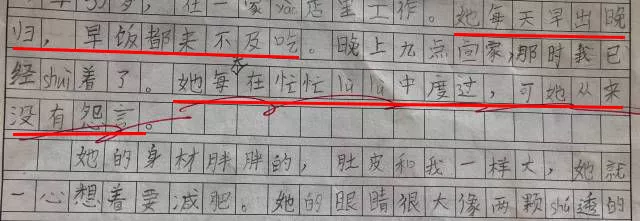 岁,在一家yao店里工作。她每天早出晚
归,早饭都来不及吃。晚上九点回家,那时我已
经shui着了。她每在忙忙lu lu中度过,可她从来
没有怨言。
她的身材胖胖的,肚皮和我一样大,她就
一心想着要减肥。她的眼睛很大像两颗shú透的